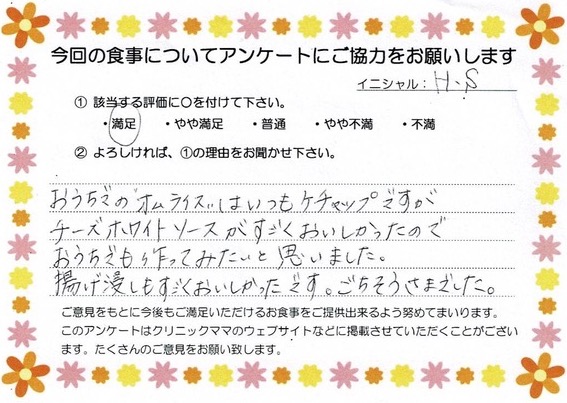 今回の食事についてアンケートにご協力をお願いします
イニシャル：H.S
① 該当する評価に○を付けて下さい。
・満足 ・やや満足 ・普通 ・やや不満 ・不満
② よろしければ、①の理由をお聞かせ下さい。
おうちでの"オムライス"はいつもケチャップですが
チーズホワイトソースがすごくおいしかったので
おうちでも作ってみたいと思いました。
揚げ浸しもすごくおいしかったです。ごちそうさまでした。
ご意見をもとに今後もご満足いただけるお食事をご提供出来るよう努めてまいります。
このアンケートはクリニックママのウェブサイトなどに掲載させていただくことがござい
ます。たくさんのご意見をお願い致します。